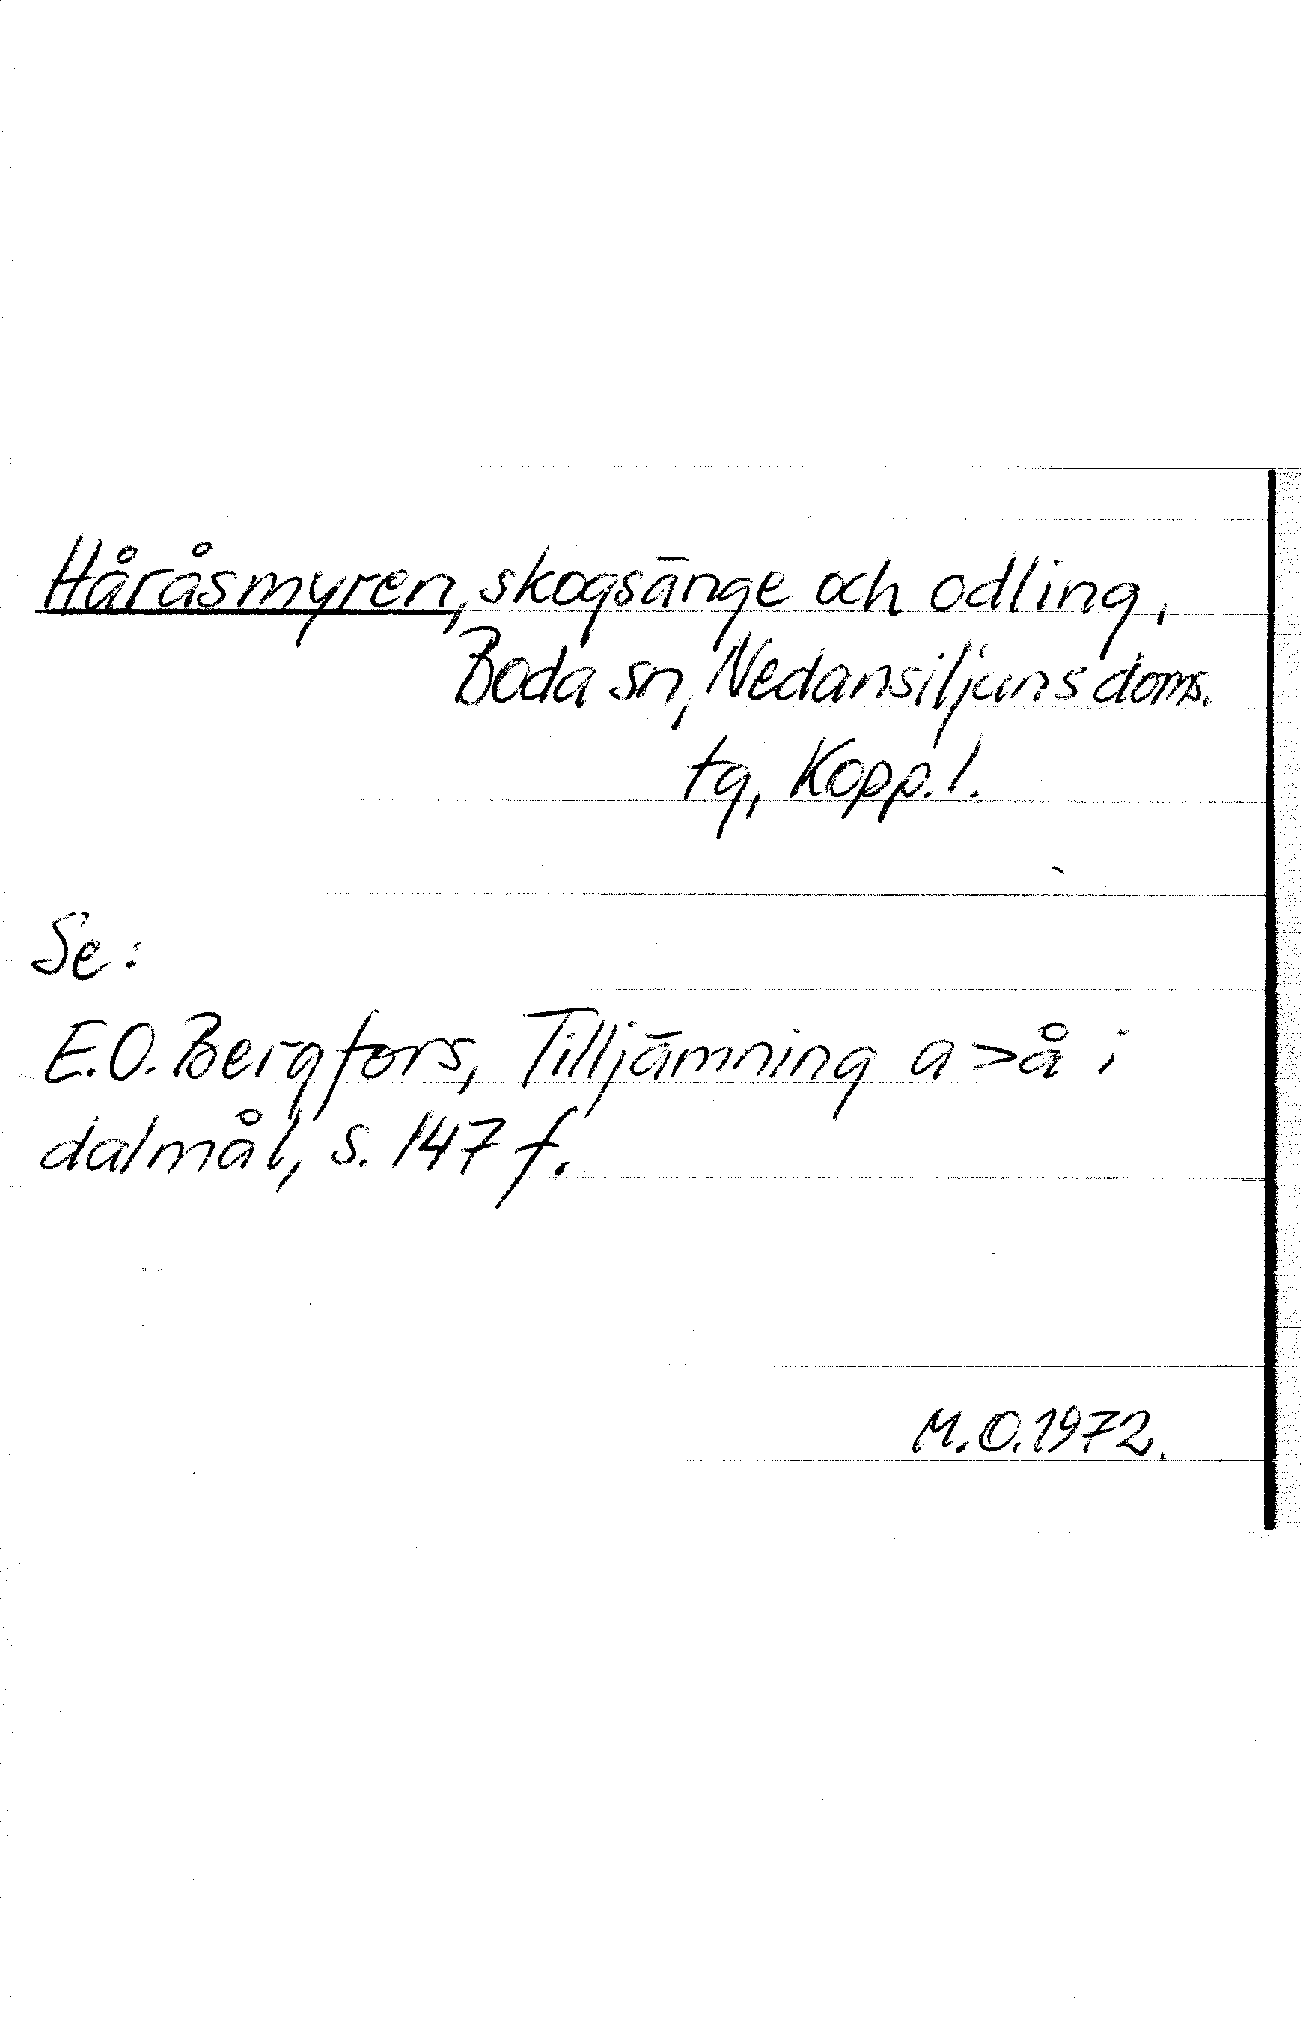 Håråsmyren, skogsänge och odling,
Boda sn, Nedansiljuns doms.
tg, Kopp. l.
Se:
E.O. Bergfors, Tilljämning a>å i
dalmål, s. 147 f.
M.O. 1972.